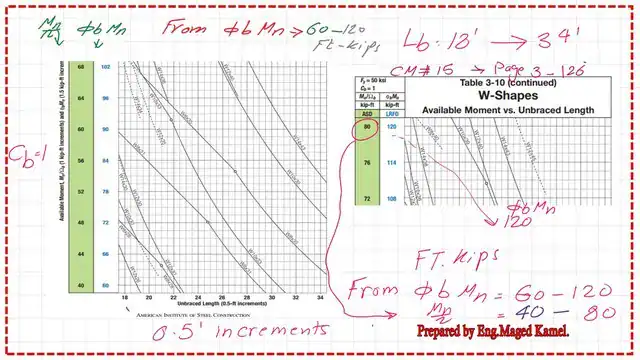 Mn/Ω φbMn From φbMn → 60-120
FT-Kips
Lb: 18' → 34'
CM#15 → Page 3-126
Cb=1
Available Moment, Mn/Ωb (1 kip-ft increments) and φbMn (1.5 kip-ft increments)
68 102
64 96
60 90
56 84
52 78
48 72
44 66
40 60
18 20 22 24 26 28 30 32 34
Unbraced Length (0.5-ft increments)
AMERICAN INSTITUTE OF STEEL CONSTRUCTION
0.5' increments
Fy = 50 ksi
Cb = 1
Mn/Ωb φbMn
kip-ft kip-ft
ASD LRFD
Table 3-10 (continued)
W-Shapes
Available Moment vs. Unbraced Length
80 120
76 114
72 108
φbMn
120
FT. Kips
From φbMn = 60-120
Mn/Ω = 40 - 80
Prepared by Eng.Maged Kamel.